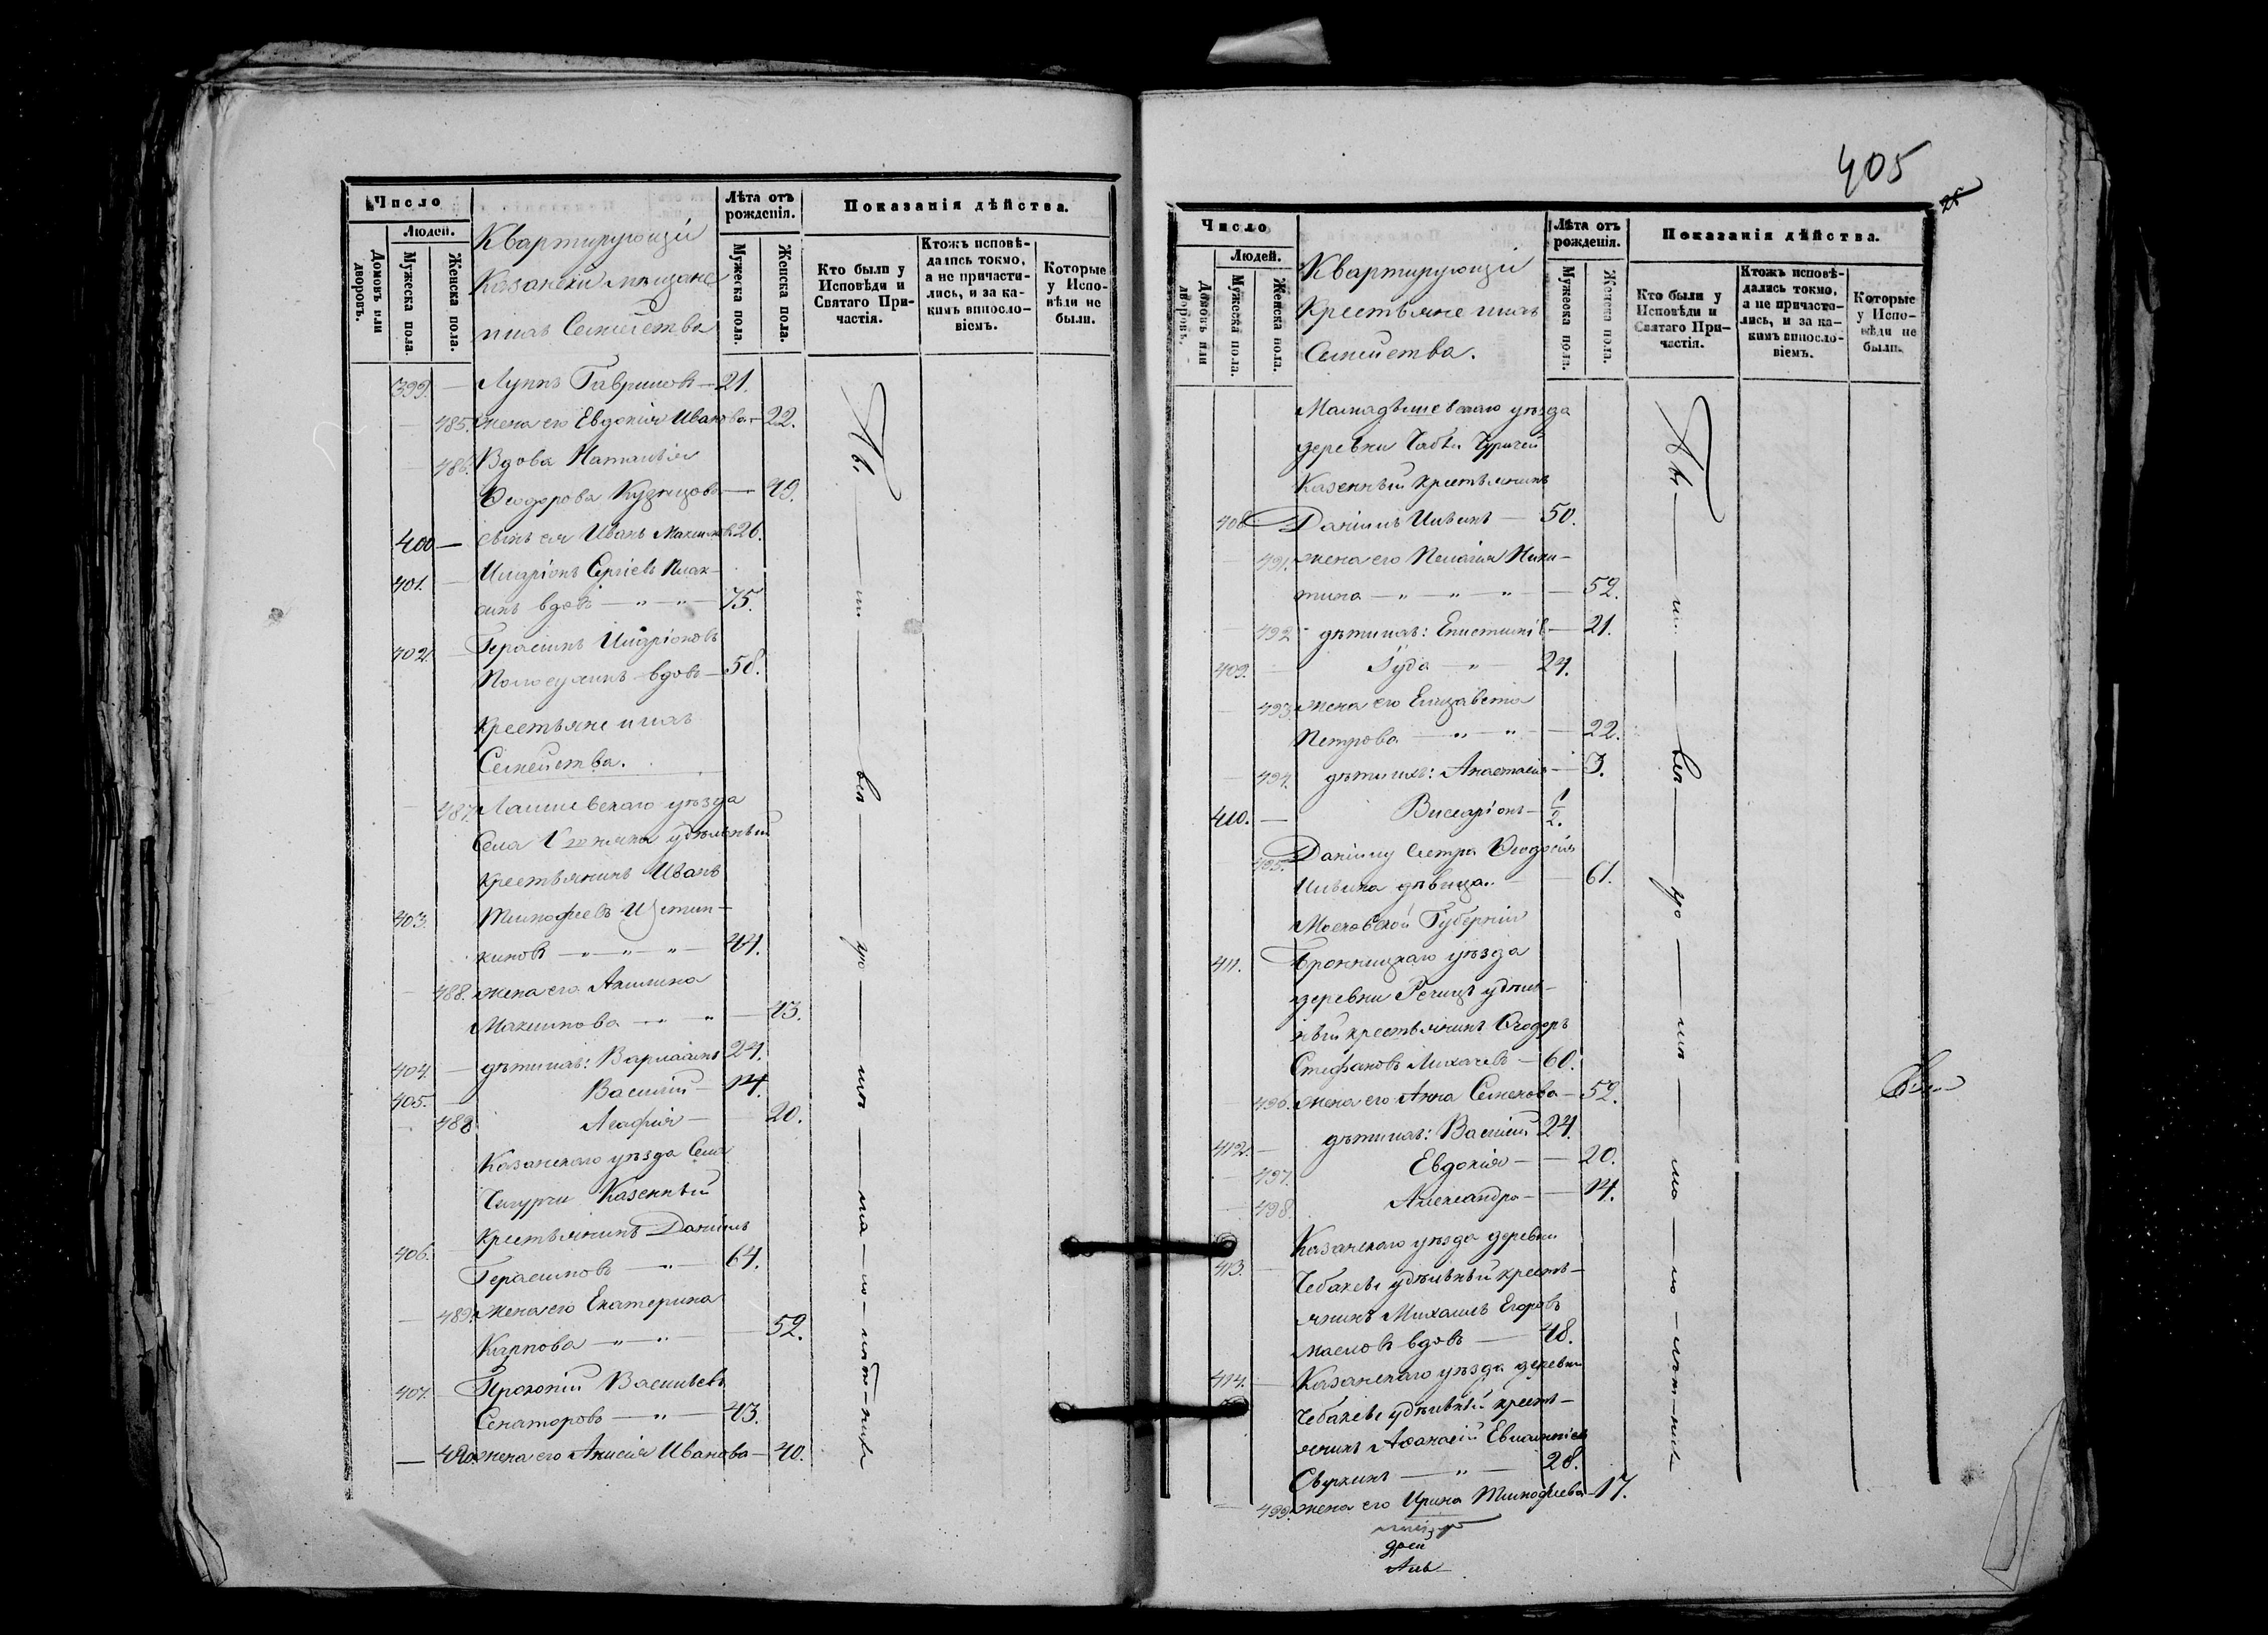 Число
Людей.
Домовъ или дворовъ.
Мужеска пола.
Женска пола.
Квартирующіи
Казанскіи мѣщане
и ихъ Семейства
Лѣта отъ рожденія.
Мужеска пола.
Женска пола.
Показанія дѣйства.
Кто были у Исповѣди и Святаго Причастія.
Ктожъ исповѣдались токмо, а не причастились, и за какимъ винословіемъ.
Которые у Исповѣди не были.
399. — Луппъ Гавриловъ — 21.
485. жена его Евдокія Иванова — 22.
486. Вдова Наталія
Ѳеодорова Кузнецова — 49.
400 — сынъ ея Иванъ Максимовъ 26.
401. — Иларіонъ Сергіевъ
вдовъ — „ — „ — 75.
402. — Герасимъ Иларіоновъ
вдовъ — 58.
Крестьяне и ихъ
Семейства.
487. Лаишевскаго уѣзда
Села удѣльный
крестьянинъ Иванъ
403. Тимофеевъ
— „ — „ — „ — 44.
488. жена его Акилина
Максимова — „ — „ — 43.
404. — дѣти ихъ: Варлаамъ 24.
405. — Василій — 14.
488 Агафія — 20.
Казанскаго уѣзда Села
Казенный
406. крестьянинъ Даніилъ
Герасимовъ — „ — 64.
489. жена его Екатерина
Карпова — „ — „ — 52.
407. — Прокопій Васильевъ
Сенаторовъ — „ — 43.
— 490. жена его Анисія Иванова — 40.
Всѣ
405
Число
Людей.
Домовъ или дворовъ.
Мужеска пола.
Женска пола.
Квартирующіи
Крестьяне и ихъ
Семейства.
Лѣта отъ рожденія.
Мужеска пола.
Женска пола.
Показанія дѣйства.
Кто были у Исповѣди и Святаго Причастія.
Ктожъ исповѣдались токмо, а не причастились, и за какимъ винословіемъ.
Которые у Исповѣди не были.
Мамадышевскаго уѣзда
деревни
Казенный крестьянинъ
408 Даніилъ Ильинъ — 50.
491. жена его Пелагія Ники-
тина — „ — „ — „ — 52.
492 дѣти ихъ: — 21.
409. — Іуда — „ — 24.
493. жена его Елизавета
Петрова — „ — „ — 22.
494. дѣти ихъ: Анастасія — 3.
410. — Виссаріонъ — 1/2.
495. Даніилу Сестра Ѳеодосія
Ильина дѣвица. — 61.
Московской Губерніи
411. Бронницкаго уѣзда
деревни Речицъ удѣль-
ный крестьянинъ Ѳеодоръ
Стефановъ Лихачевъ — 60.
496. жена его Анна Семенова — 52.
412. — дѣти ихъ: Василій 24.
497. Евдокія — 20.
498. Александра — 14.
Казанскаго уѣзда деревни
413. — Чебаксы удѣльный кресть-
янинъ Михаилъ Егоровъ
Масловъ вдовъ — 48.
414. — Казанскаго уѣзда деревни
Чебаксы удѣльный кресть-
янинъ Аѳанасій
— „ — 28.
499. жена его Ирина Тимофеева — 17.